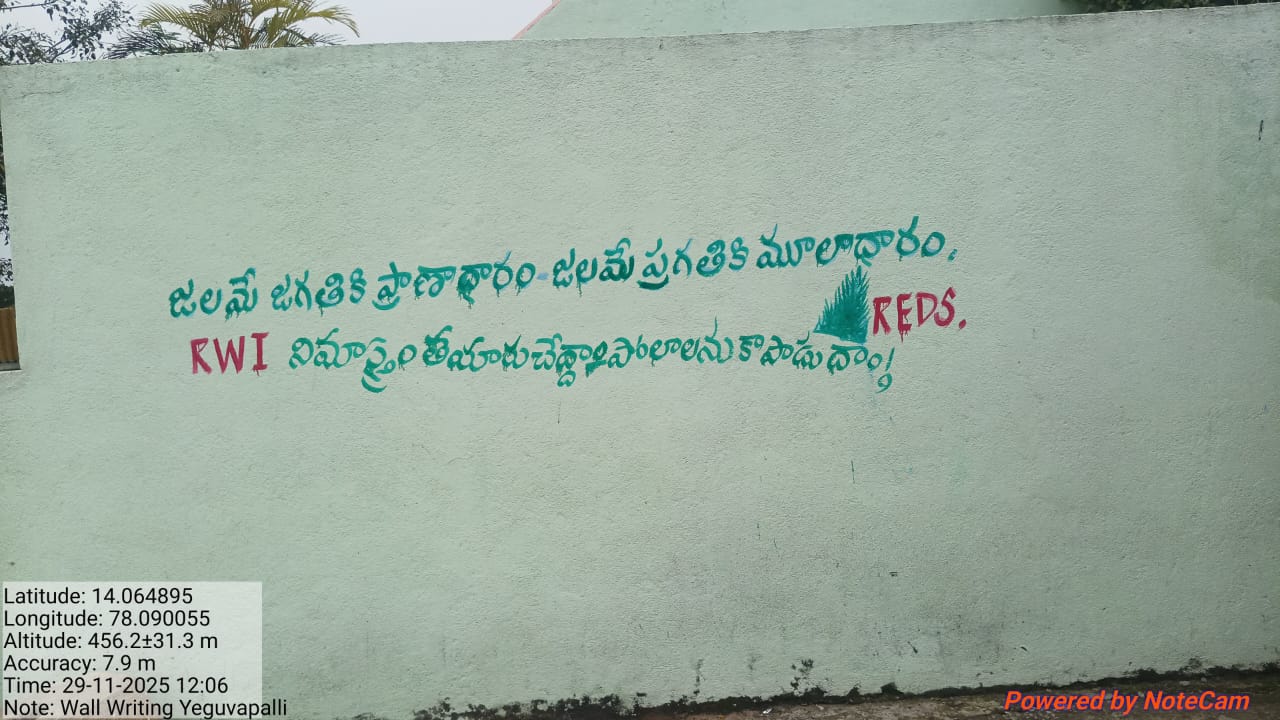 జలమే జగతికి ప్రాణాధారం-జలమే ప్రగతికి మూలాధారం.
RWI నిమాస్త్రం తయారుచేద్దాం పోలాలను కాపాడుదాం!
REDS.
Latitude: 14.064895
Longitude: 78.090055
Altitude: 456.2±31.3 m
Accuracy: 7.9 m
Time: 29-11-2025 12:06
Note: Wall Writing Yeguvapalli
Powered by NoteCam